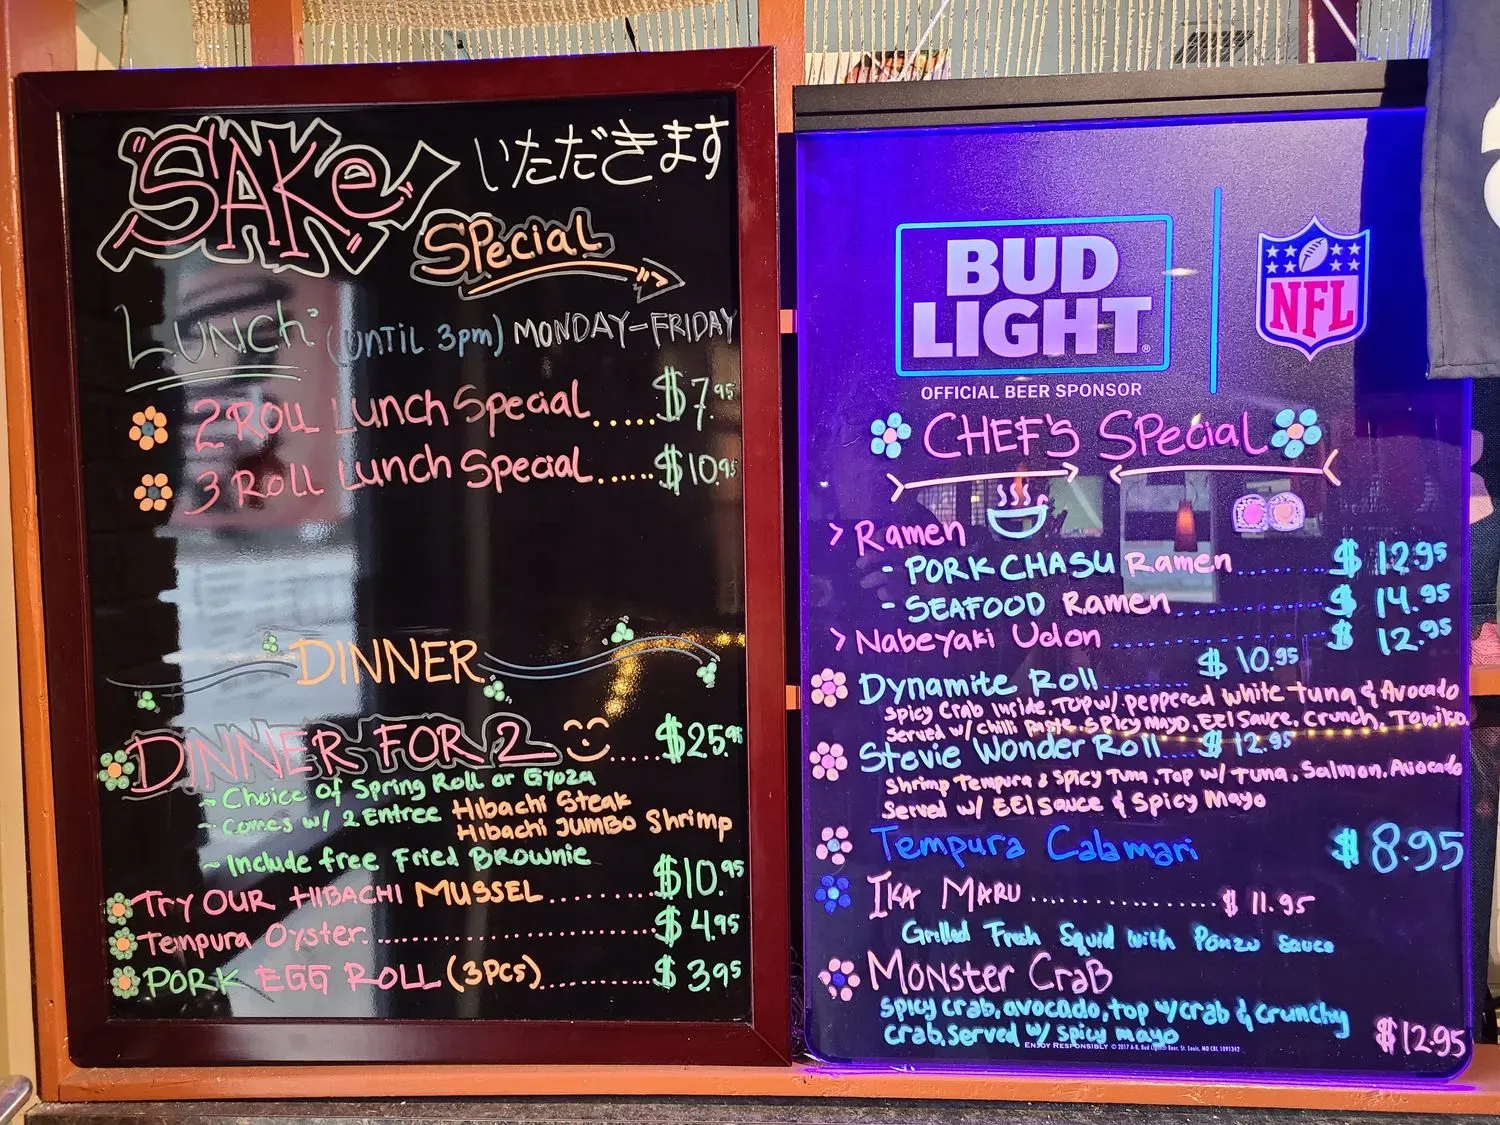 SAKe
いただきます
Special
Lunch (UNTIL 3pm) MONDAY-FRIDAY
2 Roll Lunch Special ..... $7.95
3 Roll Lunch Special ...... $10.95
DINNER
DINNER FOR 2 ..... $25.95
~ Choice of Spring Roll or Gyoza
~ Comes w/ 2 Entree Hibachi Steak
Hibachi JUMBO Shrimp
~ Include free Fried BROWNIE
Try OUR HIBACHI MUSSEL .......... $10.95
Tempura Oyster .......... $4.95
PORK EGG ROLL (3PCS) .......... $3.95
BUD
LIGHT
NFL
OFFICIAL BEER SPONSOR
CHEF'S SPecial
> Ramen
- PORK CHASU Ramen ........ $12.95
- SEAFOOD Ramen .......... $14.95
> Nabeyaki Udon .......... $12.95
Dynamite Roll ........ $10.95
Spicy Crab Inside, Top w/ peppered white tuna & Avocado
Served w/ chilli paste, Spicy Mayo, Eel Sauce, Crunch, Tobiko
Stevie Wonder Roll .... $12.95
Shrimp Tempura & Spicy Tuna, Top w/ Tuna, Salmon, Avocado
Served w/ EEl Sauce & Spicy Mayo
Tempura Calamari $8.95
IKA MARU .......... $11.95
Grilled Fresh Squid with Ponzu sauce
MONSTER CRAB
spicy crab, avocado, top w/crab & crunchy
crab, served w/ spicy mayo
$12.95
ENJOY RESPONSIBLY © 2017 A-B, Bud Light® Beer, St. Louis, MO